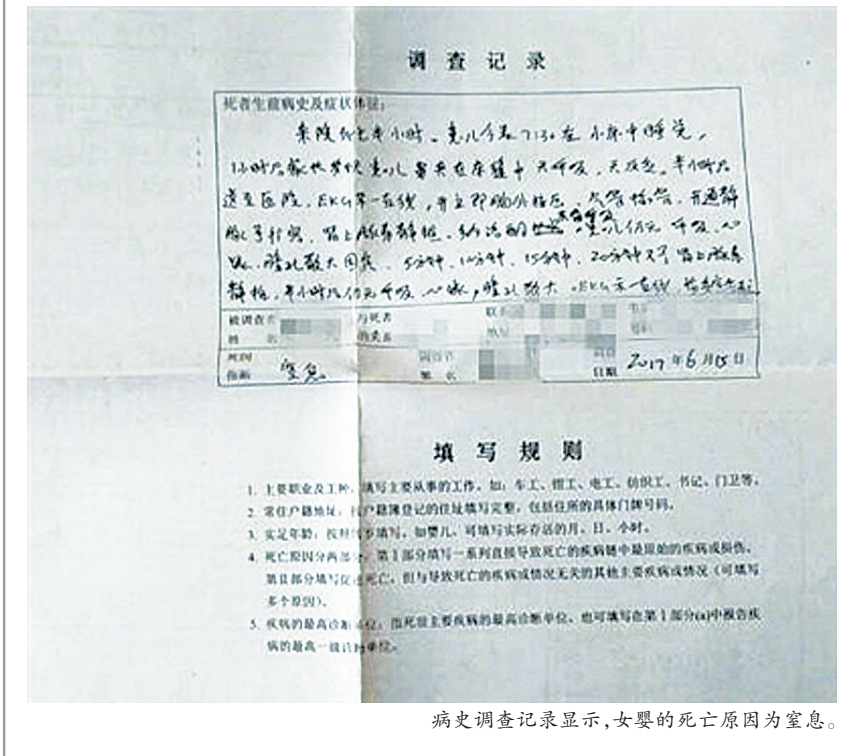 调查记录
死者生前病史及症状体征：
来院前电半小时、患儿今晨7:30在小床中睡觉，
1小时后家长发现患儿 在床缝中 无呼吸、无反应。半小时后
送至医院，EKG示一直线，予立即胸外按压、气管插管、开通静
肾上腺素静推、 患儿仍无呼吸、心
跳、瞳孔散大固定、5分钟、10分钟、15分钟、20分钟 予肾上腺素
静推，半小时后仍无呼吸、心跳，瞳孔散大、EKG示一直线、
被调查者 与死者
姓 名 的关系 地址 号码
死因 调查者 调查
推断 窒息 签名 日期 2017年6月15日
填写规则
1. 主要职业及工种：填写主要从事的工作。如：车工、钳工、电工、纺织工、书记、门卫等。
2. 常住户籍地址：按户籍簿登记的住址填写完整，包括住所的具体门牌号码。
3. 实足年龄：按照 填写。如婴儿，可填写实际存活的月、日、小时。
4. 死亡原因分两部分：第Ⅰ部分填写一系列直接导致死亡的疾病链中最原始的疾病或损伤。
第Ⅱ部分填写促进死亡，但与导致死亡的疾病或情况无关的其他主要疾病或情况（可填写
多个原因）。
5. 疾病的最高诊断单位：指死前主要疾病的最高诊断单位。也可填写在第Ⅰ部分(a)中报告疾
病的最高一级诊断单位。
病史调查记录显示，女婴的死亡原因为窒息。